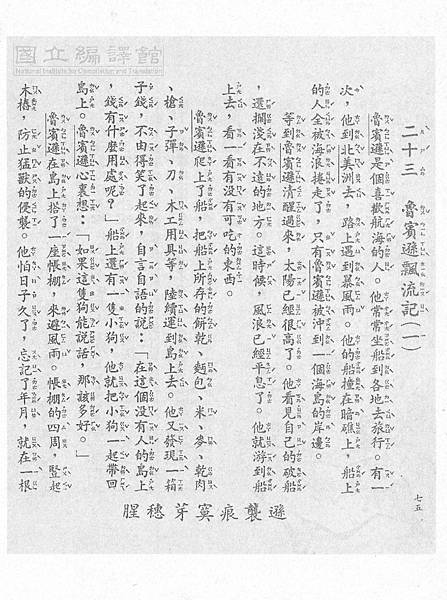 國立編譯館
National Institute for Compilation and Translation
二十三　魯賓遜飄流記(一)
魯賓遜是個喜歡航海的人。他常常坐船到各地去旅行。有一
次，他到北美洲去，路上遇到暴風雨。他的船撞在暗礁上，船上
的人全被海浪捲走了，只有魯賓遜被沖到一個海島的岸邊。
等到魯賓遜清醒過來，太陽已經很高了。他看見自己的破船
，還擱淺在不遠的地方。這時候，風浪已經平息了。他就游到船
上去，看一看有沒有可吃的東西。
魯賓遜爬上了船，把船上所存的餅乾、麵包、米、麥、乾肉
、槍、子彈、刀、木工用具等，陸續運到島上去。他又發現一箱
子錢，不由得笑了起來，自言自語的說：「在這個沒有人的島上
，錢有什麼用處呢？」船上還有一隻小狗，他就把小狗一起帶回
島上。魯賓遜心裏想：「如果這隻狗能說話，那該多好。」
魯賓遜在島上搭了一座帳棚，來避風雨。帳棚的四周，豎起
木樁，防止猛獸的侵襲。他怕日子久了，忘記了年月，就在一根
遜襲痕寞芽穗腥
七五